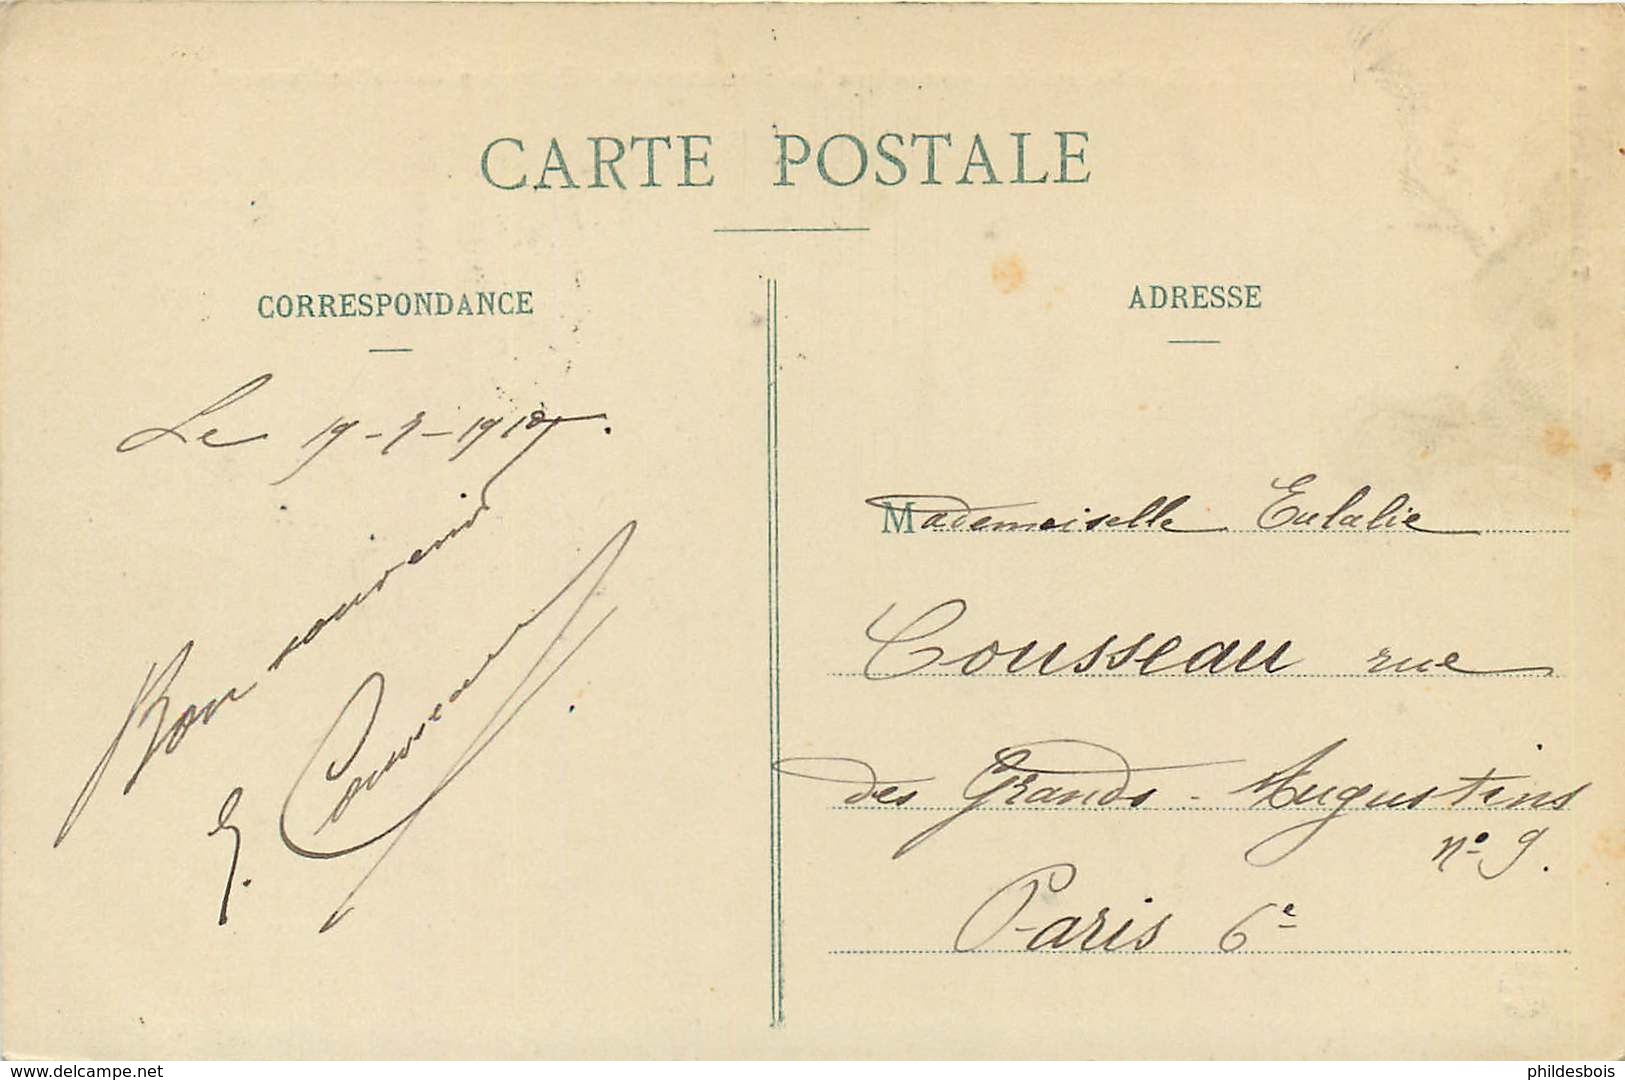 CARTE POSTALE
CORRESPONDANCE
Le 19-7-1918.
Bon souvenir
E. Cousseau
ADRESSE
Mademoiselle Eulalie
Cousseau rue
des Grands-Augustins
n° 9.
Paris 6e
delcampe.net
phildesbois